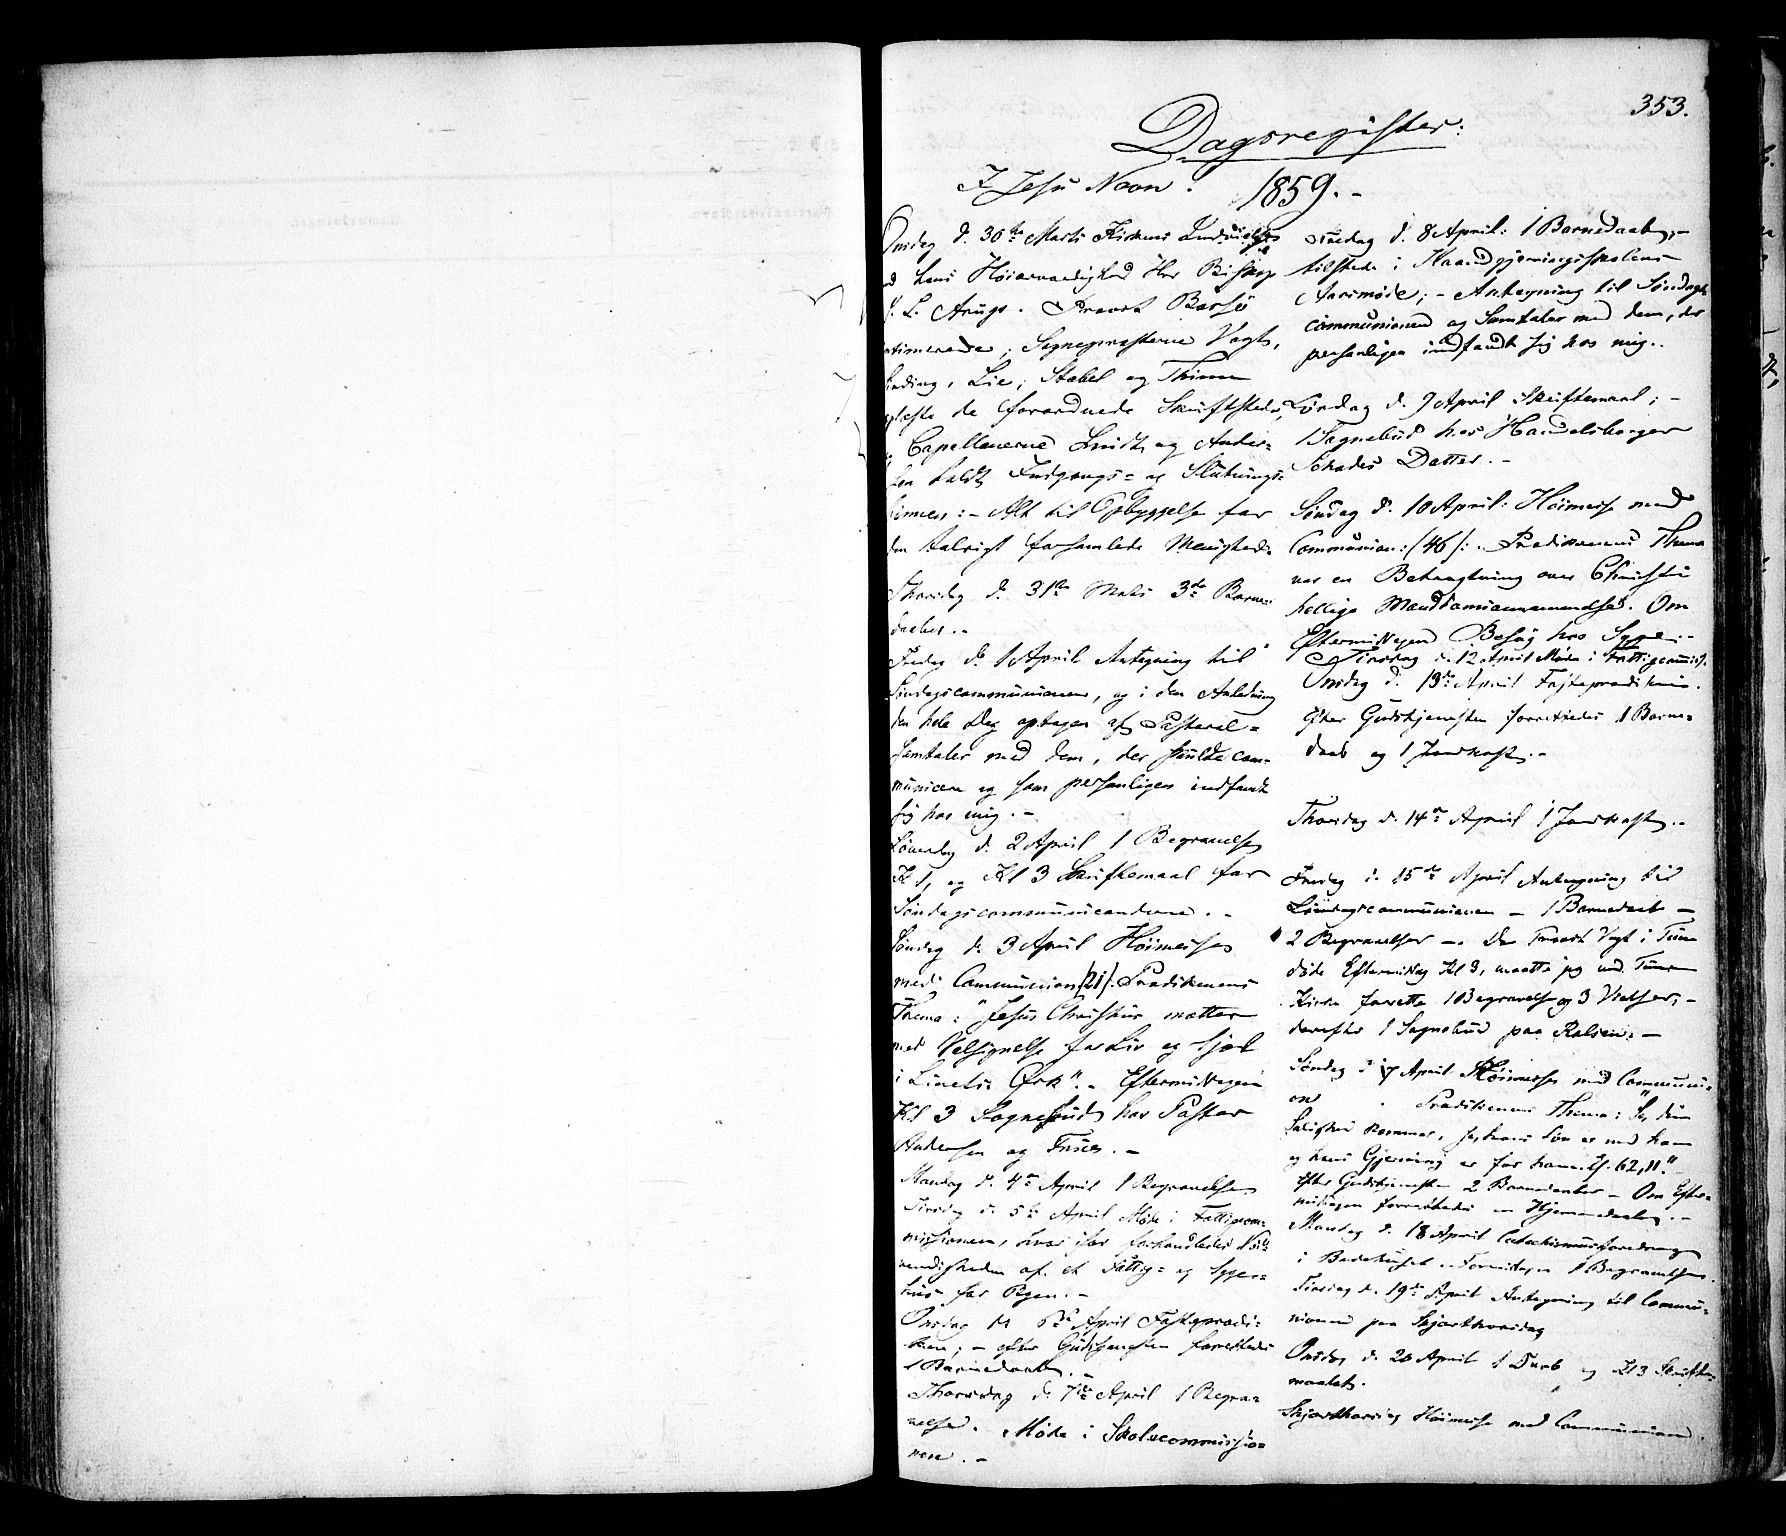 353.
Dagsregister:
I Jesu Navn. 1859.-
Onsdag d. 30te Marts Kirkens Indvielse
ved hans Høiærværdighed Hr Biskop
J. L. Arup. Provst
Sognepræsterne Vogt,
Lie, Stabel og Thime
oplæste de forordnede Skriftsteder,
Capellanerne Smidt og Ander-
sen holdt Indgangs- og Slutnings-
bønnen: - Alt til Opbyggelse for
den talrigt forsamlede Menighed.
Thorsdag d. 31te Marts 3de Barne-
daaber.-
Fredag d. 1 April Antegning til
Søndagscommunionen, og i den Anledning
den hele Dag optagen af Pastoral-
Samtaler med dem, der skulde com-
municere og som personligen indfandt
sig hos mig.-
Løverdag d. 2 April 1 Begravelse
Kl 1, og Kl 3 Skriftemaal for
Søndagscommunicanterne.-
Søndag d. 3 April Høimesse
med Communion /21/. Prædikenens
Thema: "Jesus Christus mætter
med Velsignelse for Liv og Sjæl
i Livets Ørk".- Eftermiddagen
Kl 3 Sognebud hos Pastor
Andersen og Frue.-
Mandag d. 4de April 1 Begravelse
Tirsdag d. 5te April Møde i Fattigcom-
missionen, hvor især forhandledes Nød-
vendigheden af et Fattig- og Syge-
huus for Byen.-
Onsdag d. 6te April Fasteprædi-
ken; - efter Gudstjenesten forrettedes
1 Barnedaab.-
Thorsdag d. 7de April 1 Begra-
velse. Møde i Skolecommissio-
nen.-
Fredag d. 8 April: 1 Barnedaab,-
tilstede i Haandgjerningsskolens
Aarsmøde; - Antegning til Søndags
communionen og Samtaler med dem, der
personligen indfandt sig hos mig.
Lørdag d. 9 April Skriftemaal; -
1 Sognebud hos Handelsborger
Datter.-
Søndag d. 10 April: Høimesse med
Communion: (46): Prædikenens Thema
var en Betragtning over Christi
hellige. Om
Eftermiddagen Besøg hos Syge.-
Tirsdag d. 12 April Møde i Fattigcommis.
Onsdag d. 13de April Fasteprædiken.
Efter Gudstjenesten forrettedes 1 Barne-
daab og 1 Jordkast.-
Thorsdag d. 14de April 1 Jordkast.-
Fredag d. 15de April Antegning til
Søndagscommunionen - 1 Barnedaab -
2 Begravelser -. Da Provst Vogt i Tune
døde Eftermiddag Kl 3, maatte jeg ved Tune
Kirke forrette 1 Begravelse og 3 Vielser; -
derefter 1 Sognebud paa. -
Søndag d 17 April Høimesse med Communi-
on. Prædikenens Thema: "Se, din
Salighed kommer, se, hans Løn er med ham
og hans Gjerning er for ham. Es. 62,11."
Efter Gudstjenesten 2 Barnedaaber - Om Efter-
middagen forrettedes en Hjemmedaab.-
Mandag d. 18 April Catechismusforedrag
i Bedehuset. Formiddagen 1 Begravelse.
Tirsdag d. 19de April Antegning til Commu-
nionen paa Skjærthorsdag
Onsdag d. 20 April 1 Daab og Kl 3 Skrifte-
maalet.
Skjærthorsdag Høimesse med Communion.